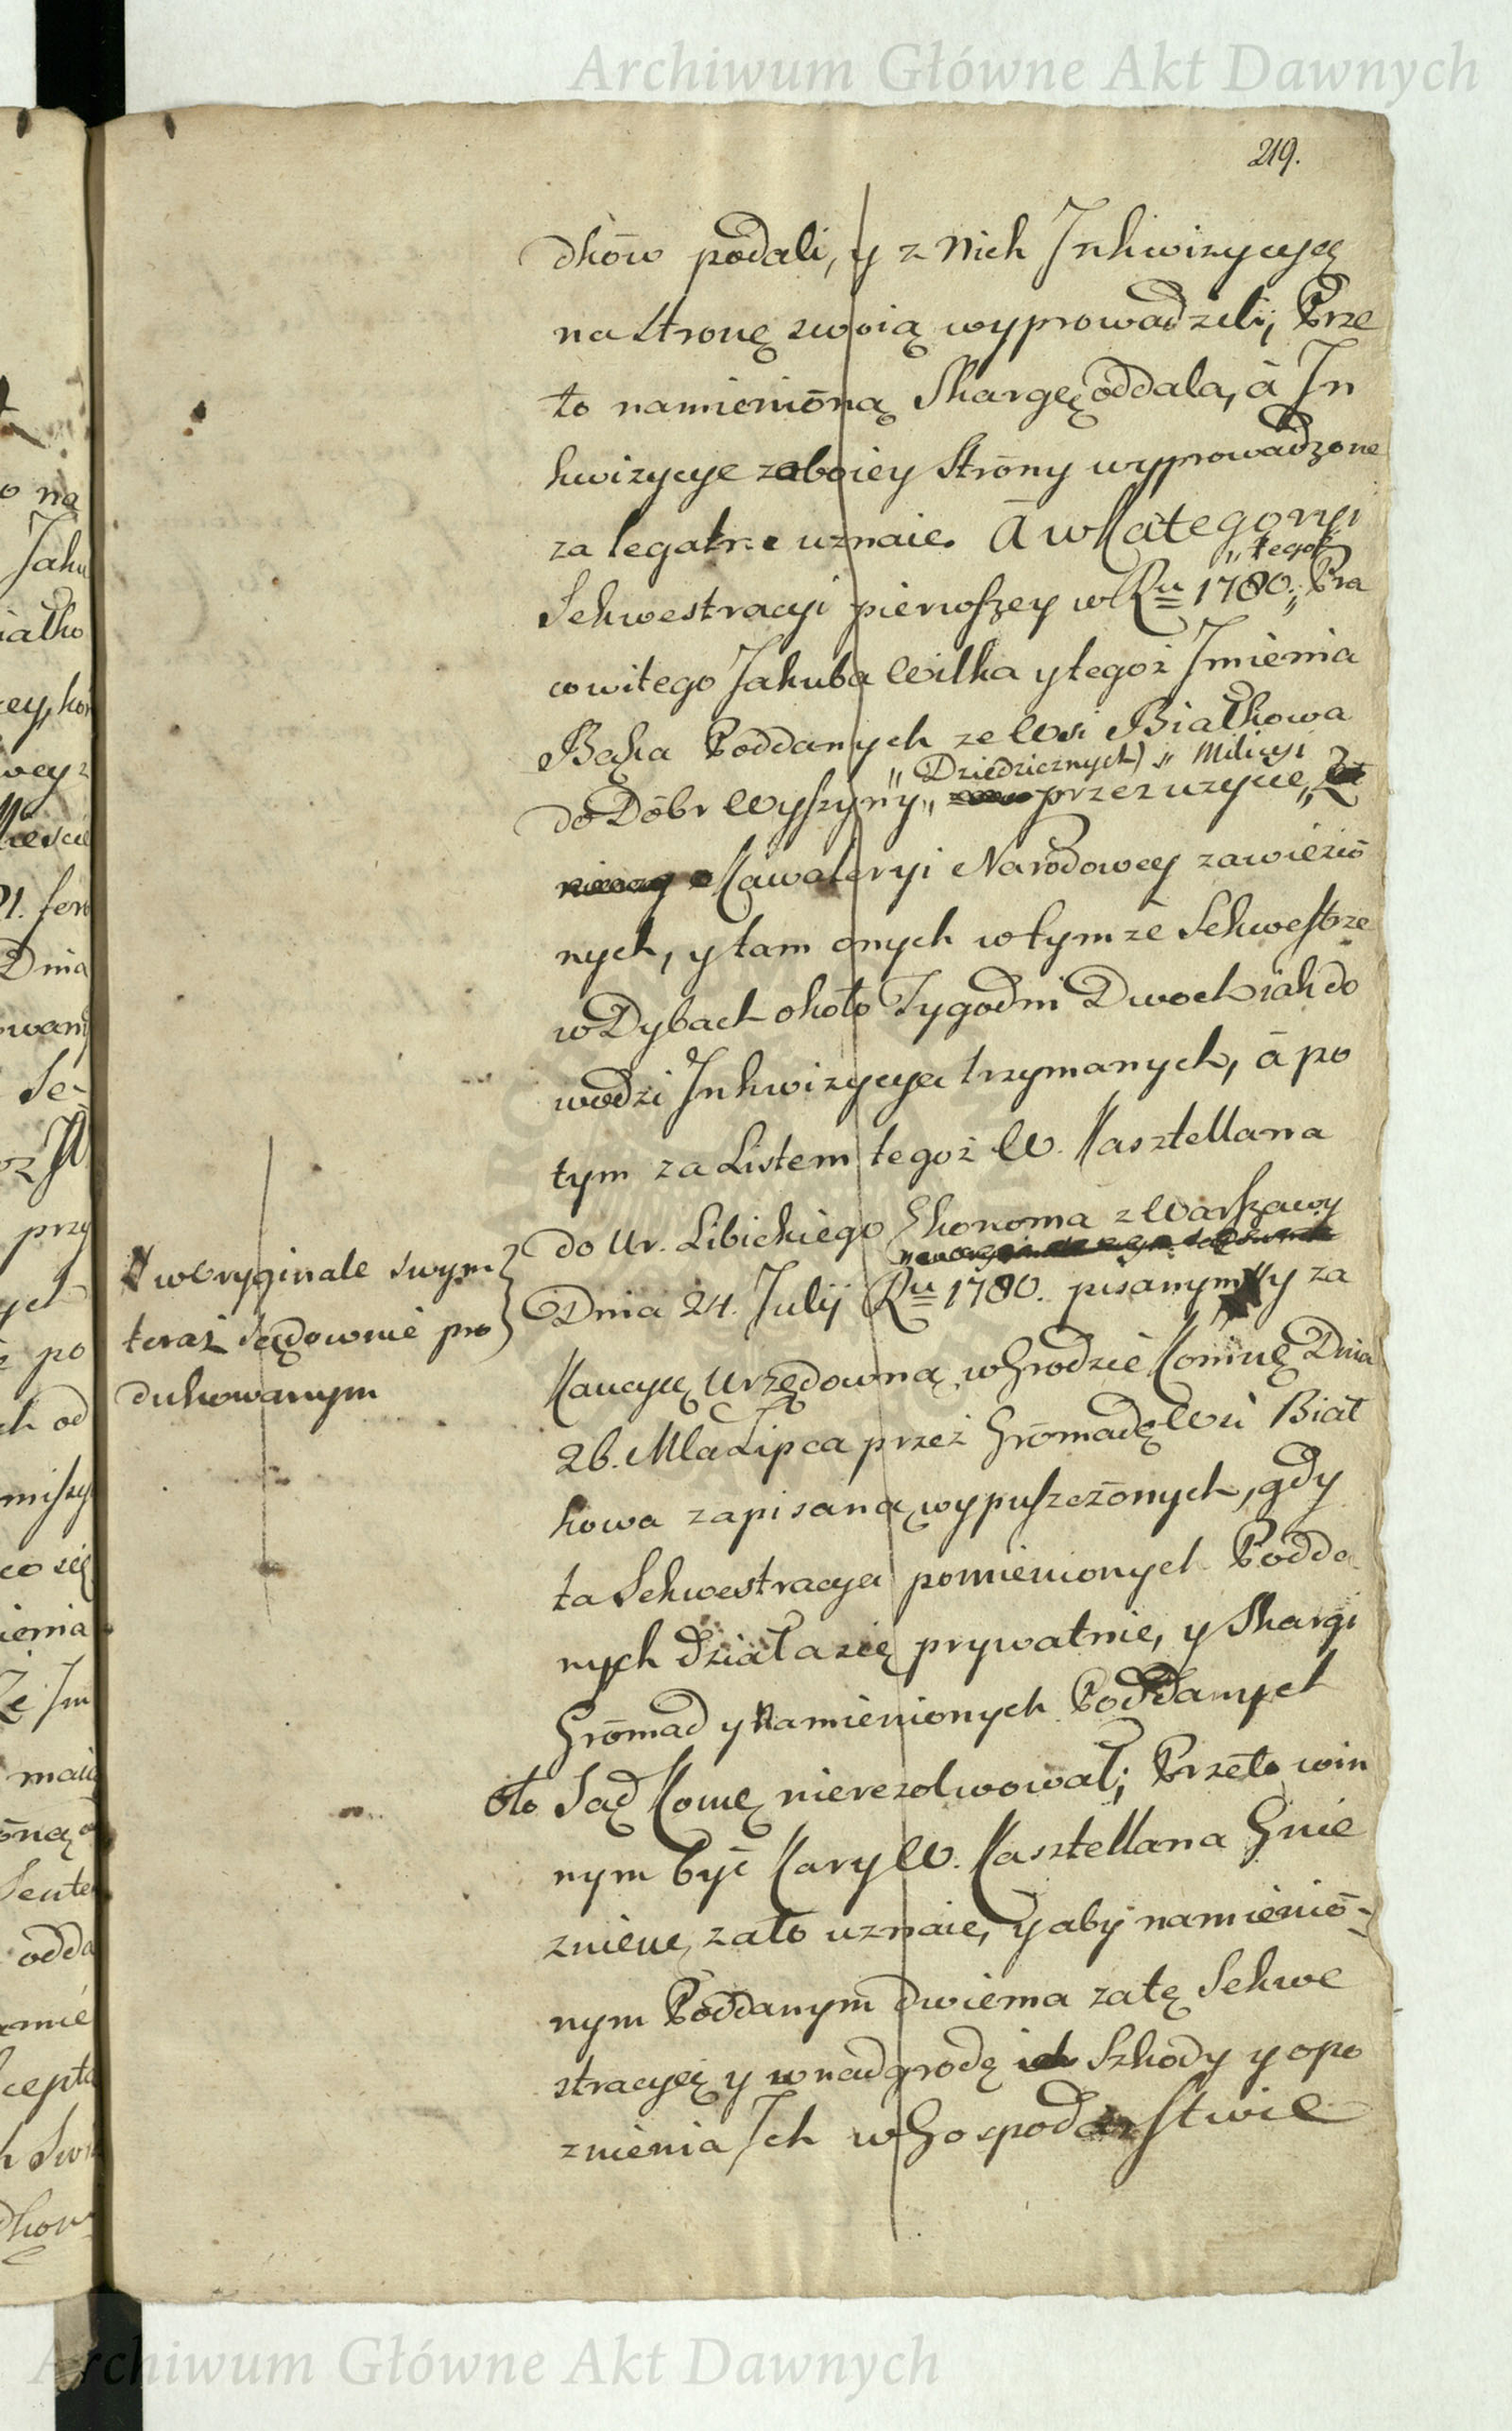 Archiwum Główne Akt Dawnych
219.
dków podali, y z Nich Inkwizycyę
na stronę swoią wyprowadzili, Prze
to namienióną Skargę oddala, á In
kwizycye z oboiey Stróny wyprowadzone
za legalne uznaie. A w Kategoryi
„ tegoż
Sekwestracyi pierwszey w Ru 1780. „ Pra
cowitego Jakuba Wilka y tegoż Imienia
Bąka Poddanych ze Wsi Białkowa
„ Dziedzicznych) „ Milicyi
do Dóbr Wyszyny „ przez uzycie „
Kawaleryi Narodowey zawiezió
nych, y tam onych w tymże Sekwestrze
w Dybach około Tygodni Dwoch iak do
wodzi Inkwizycya trzymanych, á po
tym za Listem tegoż W. Kasztellana
do Ur. Libickiego Ekonoma z Warszawy
Dnia 24. Julij Ru 1780. pisanym y za
w Oryginale swym
teraz sądownie pro
dukowanym
Kaucyą Urzędowną w Grodzie Koninę Dnia
26. Mca Lipca przez Gromadę Wsi Biał
kowa zapisaną wypuszczonych, gdy
ta Sekwestracya pomienionych Podda
nych działa się prywatnie, y Skargi
Gromad y Namienionych Poddanych
oto Sąd Komę nierezolwował; Przeto win
nym być Kary W. Kasztellana Gnie
znienę zato uznaie, y aby namienió-
nym Poddanym dwiema zatę Sekwe
stracyę y w nadgrodę ich Szkody y opo
znienia Ich w Gospodarstwie
Archiwum Główne Akt Dawnych